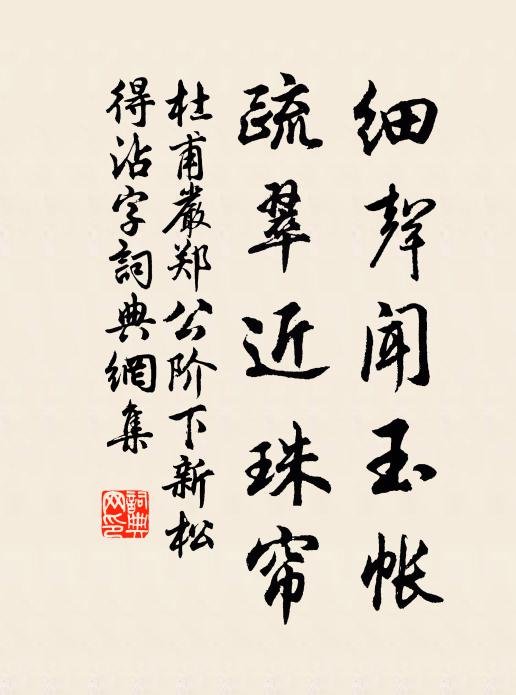 细聲闻玉帐
疏翠近珠帘
杜甫嚴郑公阶下新松
得沾字詞典網集
詞典网印